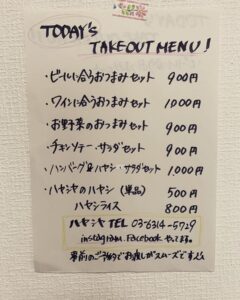 TODAY's
TAKEOUT MENU!
・ビールに合うおつまみセット 900円
・ワインに合うおつまみセット 1000円
・お野菜のおつまみセット 900円
・チョリソー・サラダセット 900円
・ハンバーグ&ハヤシ・サラダセット 1000円
・ハヤシヤのハヤシ(単品) 500円
ハヤシライス 800円
ハヤシヤ TEL 03-6314-5729
instagram. Facebook やってます。
事前のご予約でお渡しがスムーズです